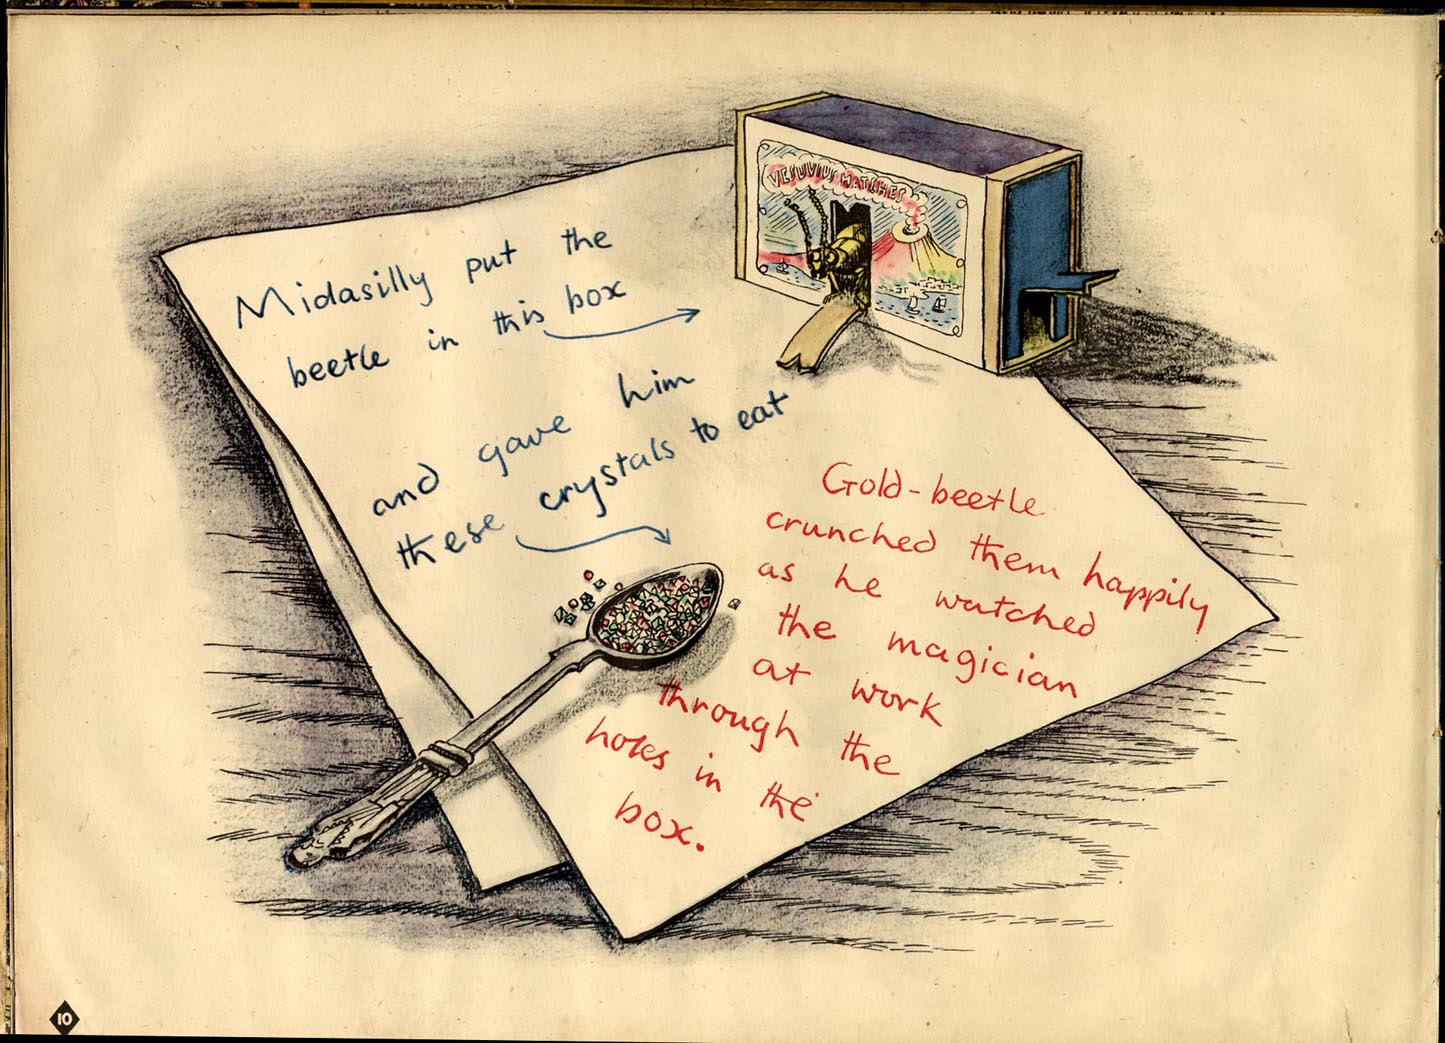 VESUVIUS MATCHES
Midasilly put the
beetle in this box
and gave him
these crystals to eat
Gold-beetle
crunched them happily
as he watched
the magician
at work
through the
holes in the
box.
10